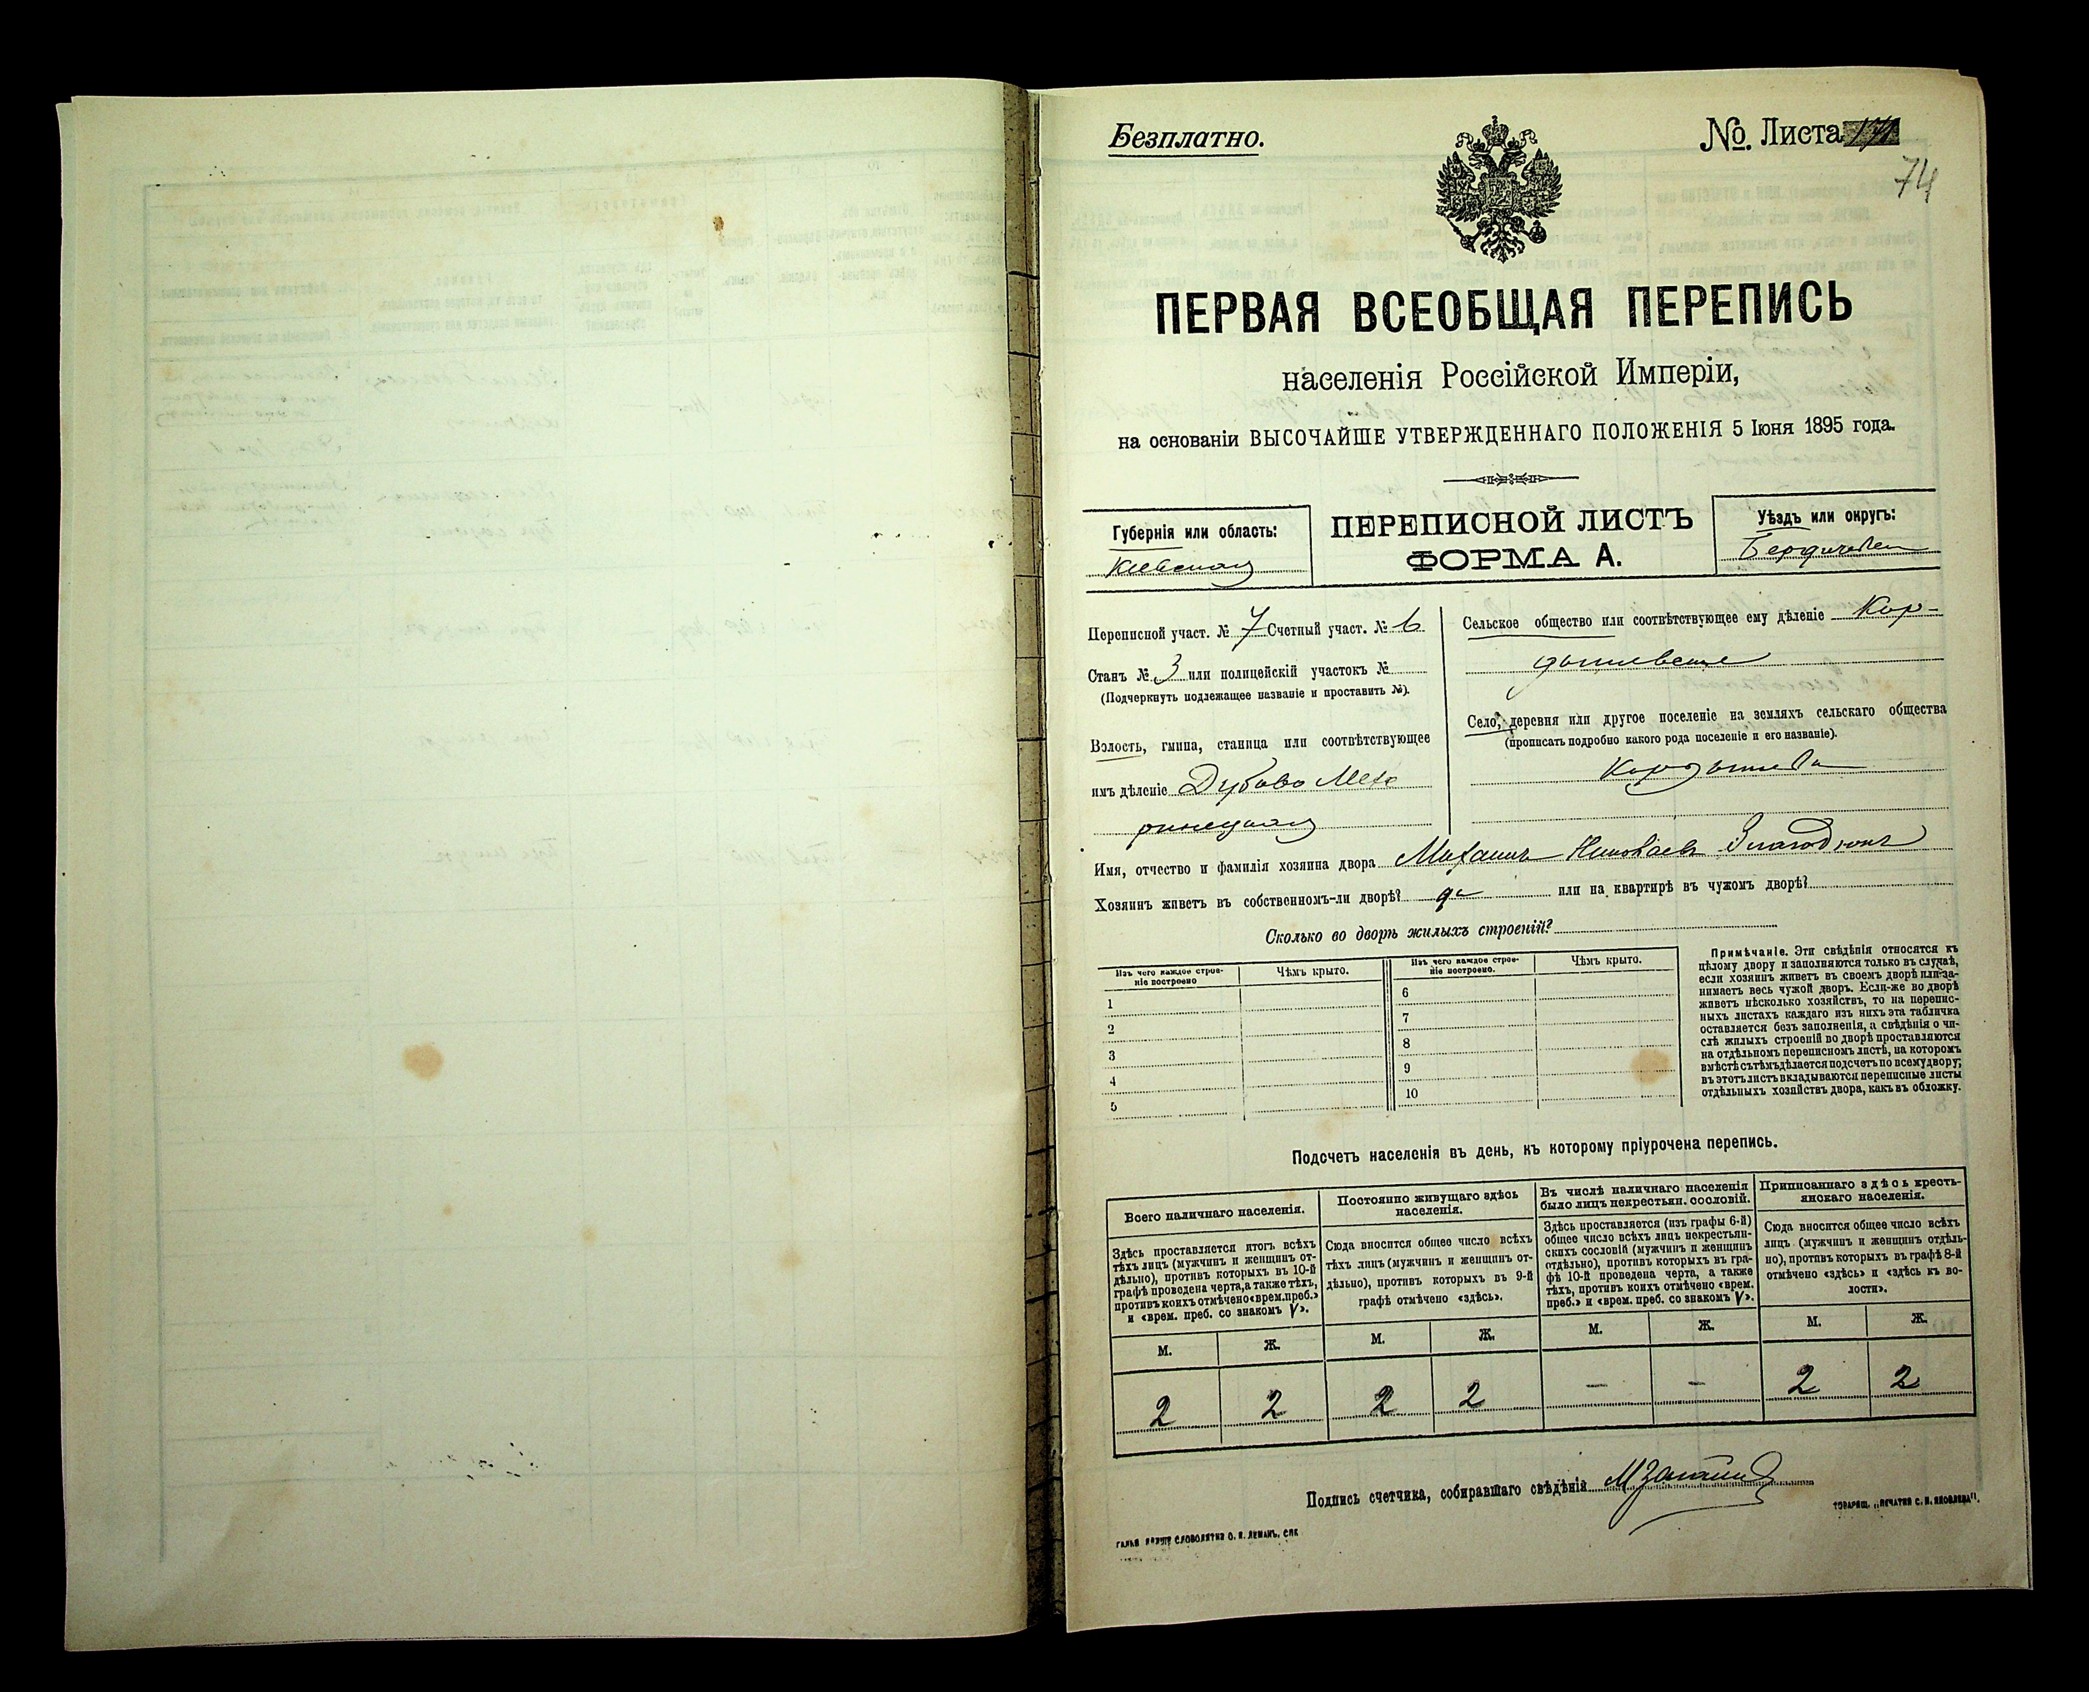 Безплатно.
№. Листа
74
ПЕРВАЯ ВСЕОБЩАЯ ПЕРЕПИСЬ
населенія Россійской Имперіи,
на основаніи ВЫСОЧАЙШЕ УТВЕРЖДЕННАГО ПОЛОЖЕНІЯ 5 Іюня 1895 года.
Губернія или область:
Киевская
ПЕРЕПИСНОЙ ЛИСТЪ
ФОРМА А.
Уѣздъ или округъ:
Бердичевск
Переписной участ. № 7 Счетный участ. № 6
Станъ № 3 или полицейскій участокъ №
(Подчеркнуть подлежащее названіе и проставить №).
Волость, гмина, станица или соотвѣтствующее
имъ дѣленіе Дубово Мехе
ринецкая
Сельское общество или соотвѣтствующее ему дѣленіе Кор-
дышевское
Село, деревня или другое поселеніе на земляхъ сельскаго общества
(прописать подробно какого рода поселеніе и его названіе).
Кордышевка
Имя, отчество и фамилія хозяина двора Михаилъ Николаевъ
Хозяинъ живетъ въ собственномъ-ли дворѣ? да или на квартирѣ въ чужомъ дворѣ?
Сколько во дворѣ жилыхъ строеній?
Изъ чего каждое строе-
ніе построено
Чѣмъ крыто.
1
2
3
4
5
Изъ чего каждое строе-
ніе построено.
Чѣмъ крыто.
6
7
8
9
10
Примѣчаніе. Эти свѣдѣнія относятся къ
цѣлому двору и заполняются только въ случаѣ,
если хозяинъ живетъ въ своемъ дворѣ или за-
нимаетъ весь чужой дворъ. Если-же во дворѣ
живетъ нѣсколько хозяйствъ, то на перепис-
ныхъ листахъ каждаго изъ нихъ эта табличка
оставляется безъ заполненія, а свѣдѣнія о чи-
слѣ жилыхъ строеній во дворѣ проставляются
на отдѣльномъ переписномъ листѣ, на которомъ
вмѣстѣ съ тѣмъ дѣлается подсчетъ по всему двору;
въ этотъ листъ вкладываются переписные листы
отдѣльныхъ хозяйствъ двора, какъ въ обложку.
Подсчетъ населенія въ день, къ которому пріурочена перепись.
Всего наличнаго населенія.
Здѣсь проставляется итогъ всѣхъ
тѣхъ лицъ (мужчинъ и женщинъ от-
дѣльно), противъ которыхъ въ 10-й
графѣ проведена черта, а также тѣхъ,
противъ коихъ отмѣчено «врем. преб.»
и «врем. преб. со знакомъ V».
М.
Ж.
2
2
Постоянно живущаго здѣсь
населенія.
Сюда вносится общее число всѣхъ
тѣхъ лицъ (мужчинъ и женщинъ от-
дѣльно), противъ которыхъ въ 9-й
графѣ отмѣчено «здѣсь».
М.
Ж.
2
2
Въ числѣ наличнаго населенія
было лицъ некрестьян. сословій.
Здѣсь проставляется (изъ графы 6-й)
общее число всѣхъ лицъ некрестьян-
скихъ сословій (мужчинъ и женщинъ
отдѣльно), противъ которыхъ въ гра-
фѣ 10-й проведена черта, а также
тѣхъ, противъ коихъ отмѣчено «врем.
преб.» и «врем. преб. со знакомъ V».
М.
Ж.
—
—
Приписаннаго здѣсь кресть-
янскаго населенія.
Сюда вносится общее число всѣхъ
лицъ (мужчинъ и женщинъ отдѣль-
но), противъ которыхъ въ графѣ 8-й
отмѣчено «здѣсь» и «здѣсь къ во-
лости».
М.
Ж.
2
2
Подпись счетчика, собиравшаго свѣдѣнія
СЛОВОЛИТНИ О. И. ЛЕМАНЪ, СПБ
ТОВАРИЩ. „ПЕЧАТНЯ С. П. ЯКОВЛЕВА".